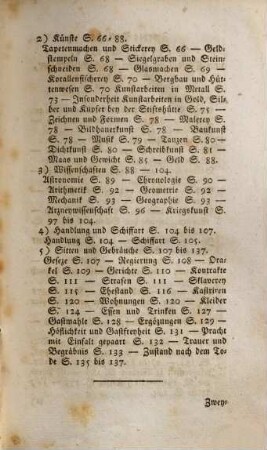 2) Künste S. 66-88.
Tapetenmachen und Stickerey S. 66 — Geld-
stempeln S. 68 — Siegelgraben und Stein-
schneiden S. 68 — Glasmachen S. 69 —
Korallenfischerey S. 70 — Bergbau und Hüt-
tenwesen S. 70 Kunstarbeiten in Metall S.
73 — Insonderheit Kunstarbeiten in Gold, Sil-
ber und Kupfer bey der Stiftshütte S. 75 —
Zeichnen und Formen S. 78 — Malerey S.
78 — Bildhauerkunst S. 78 — Baukunst
S. 78 — Musik S. 79 — Tanzen S. 80 —
Dichtkunst S. 80 — Schreibkunst S. 81 —
Maas und Gewicht S. 85 — Geld S. 88.
3) Wissenschaften S. 88 — 104.
Astronomie S. 89 — Chronologie S. 90 —
Arithmetik S. 92 — Geometrie S. 92 —
Mechanik S. 93 — Geographie S. 93 —
Arzneywissenschaft S. 96 — Kriegskunst S.
97 bis 104.
4) Handlung und Schiffart S. 104 bis 107.
Handlung S. 104 — Schiffart S. 105.
5) Sitten und Gebräuche S. 107 bis 137.
Geseze S. 107 — Regierung S. 108 — Ora-
kel S. 109 — Gerichte S. 110 — Kontrakte
S. 111 — Strafen S. 111 — Sklaverey
S. 115 — Ehestand S. 116 — Kastriren
S. 120 — Wohnungen S. 120 — Kleider
S. 124 — Essen und Trinken S. 127 —
Gastmahle S. 128 — Ergözungen S. 129 —
Höflichkeit und Gastfreyheit S. 131 — Pracht
mit Einfalt gepaart S. 132 — Trauer und
Begräbnis S. 133 — Zustand nach dem To-
de S. 135 bis 137.
Zwey-